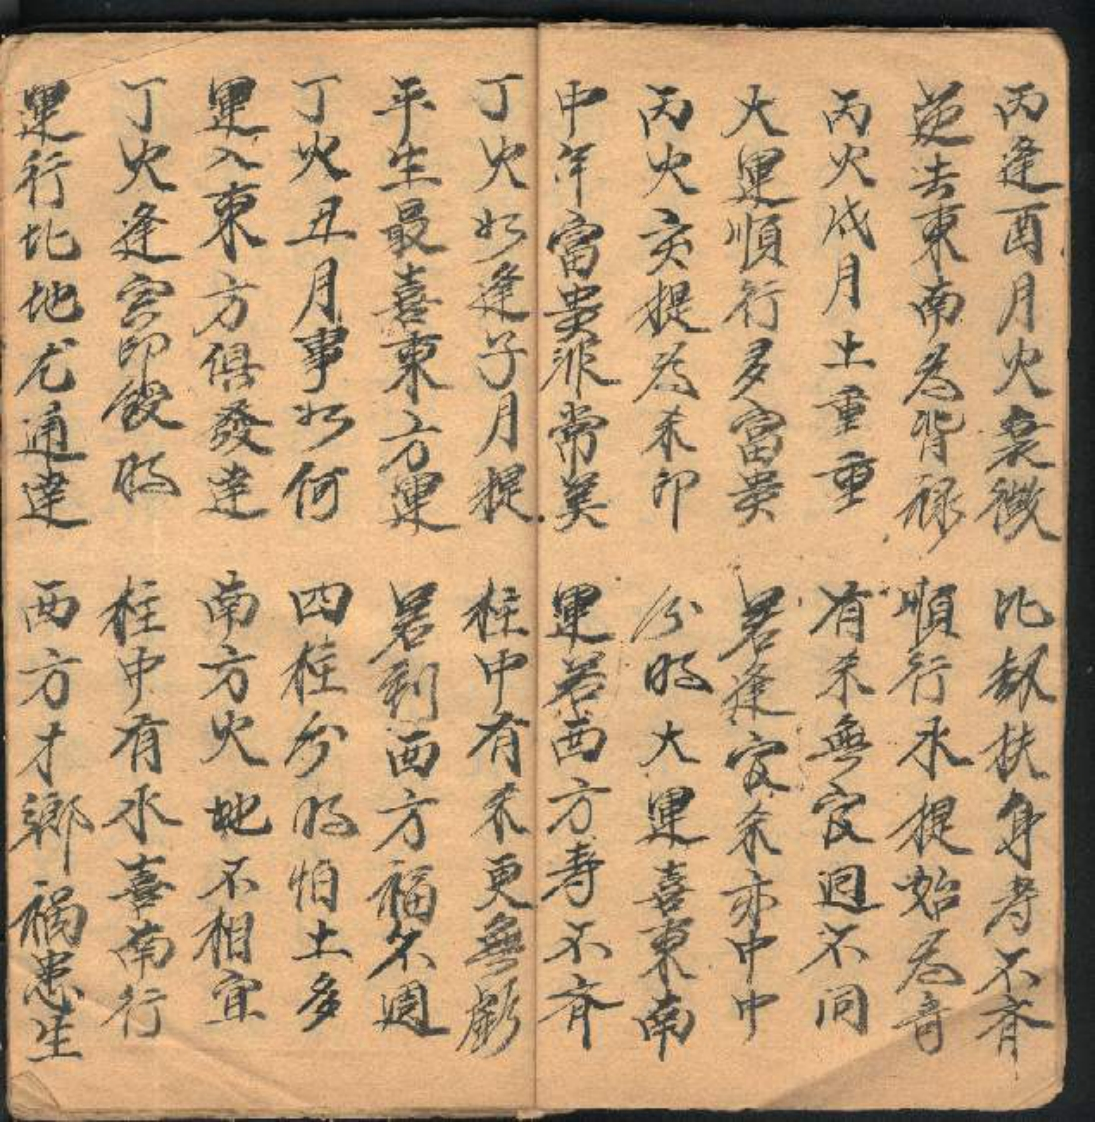 丙逢酉月火衰微 比刼扶身寿不齊
去東南為背禄 順行水提始為奇
丙火戍月土重重 有木無官迥不同
大運順行多富貴 若逢官杀亦中中
丙火亥提為杀印 分明大運喜東南
中年富貴非常美 運若西方寿不齊
丁火如逢子月提 柱中有杀更無虧
平生最喜東方運 若到西方福不週
丁火丑月事如何 四柱分明怕土多
運入東方俱發達 南方火地不相宜
丁火逢寅印綬明 柱中有水喜南行
運行北地尤通達 西方才鄉禍患生